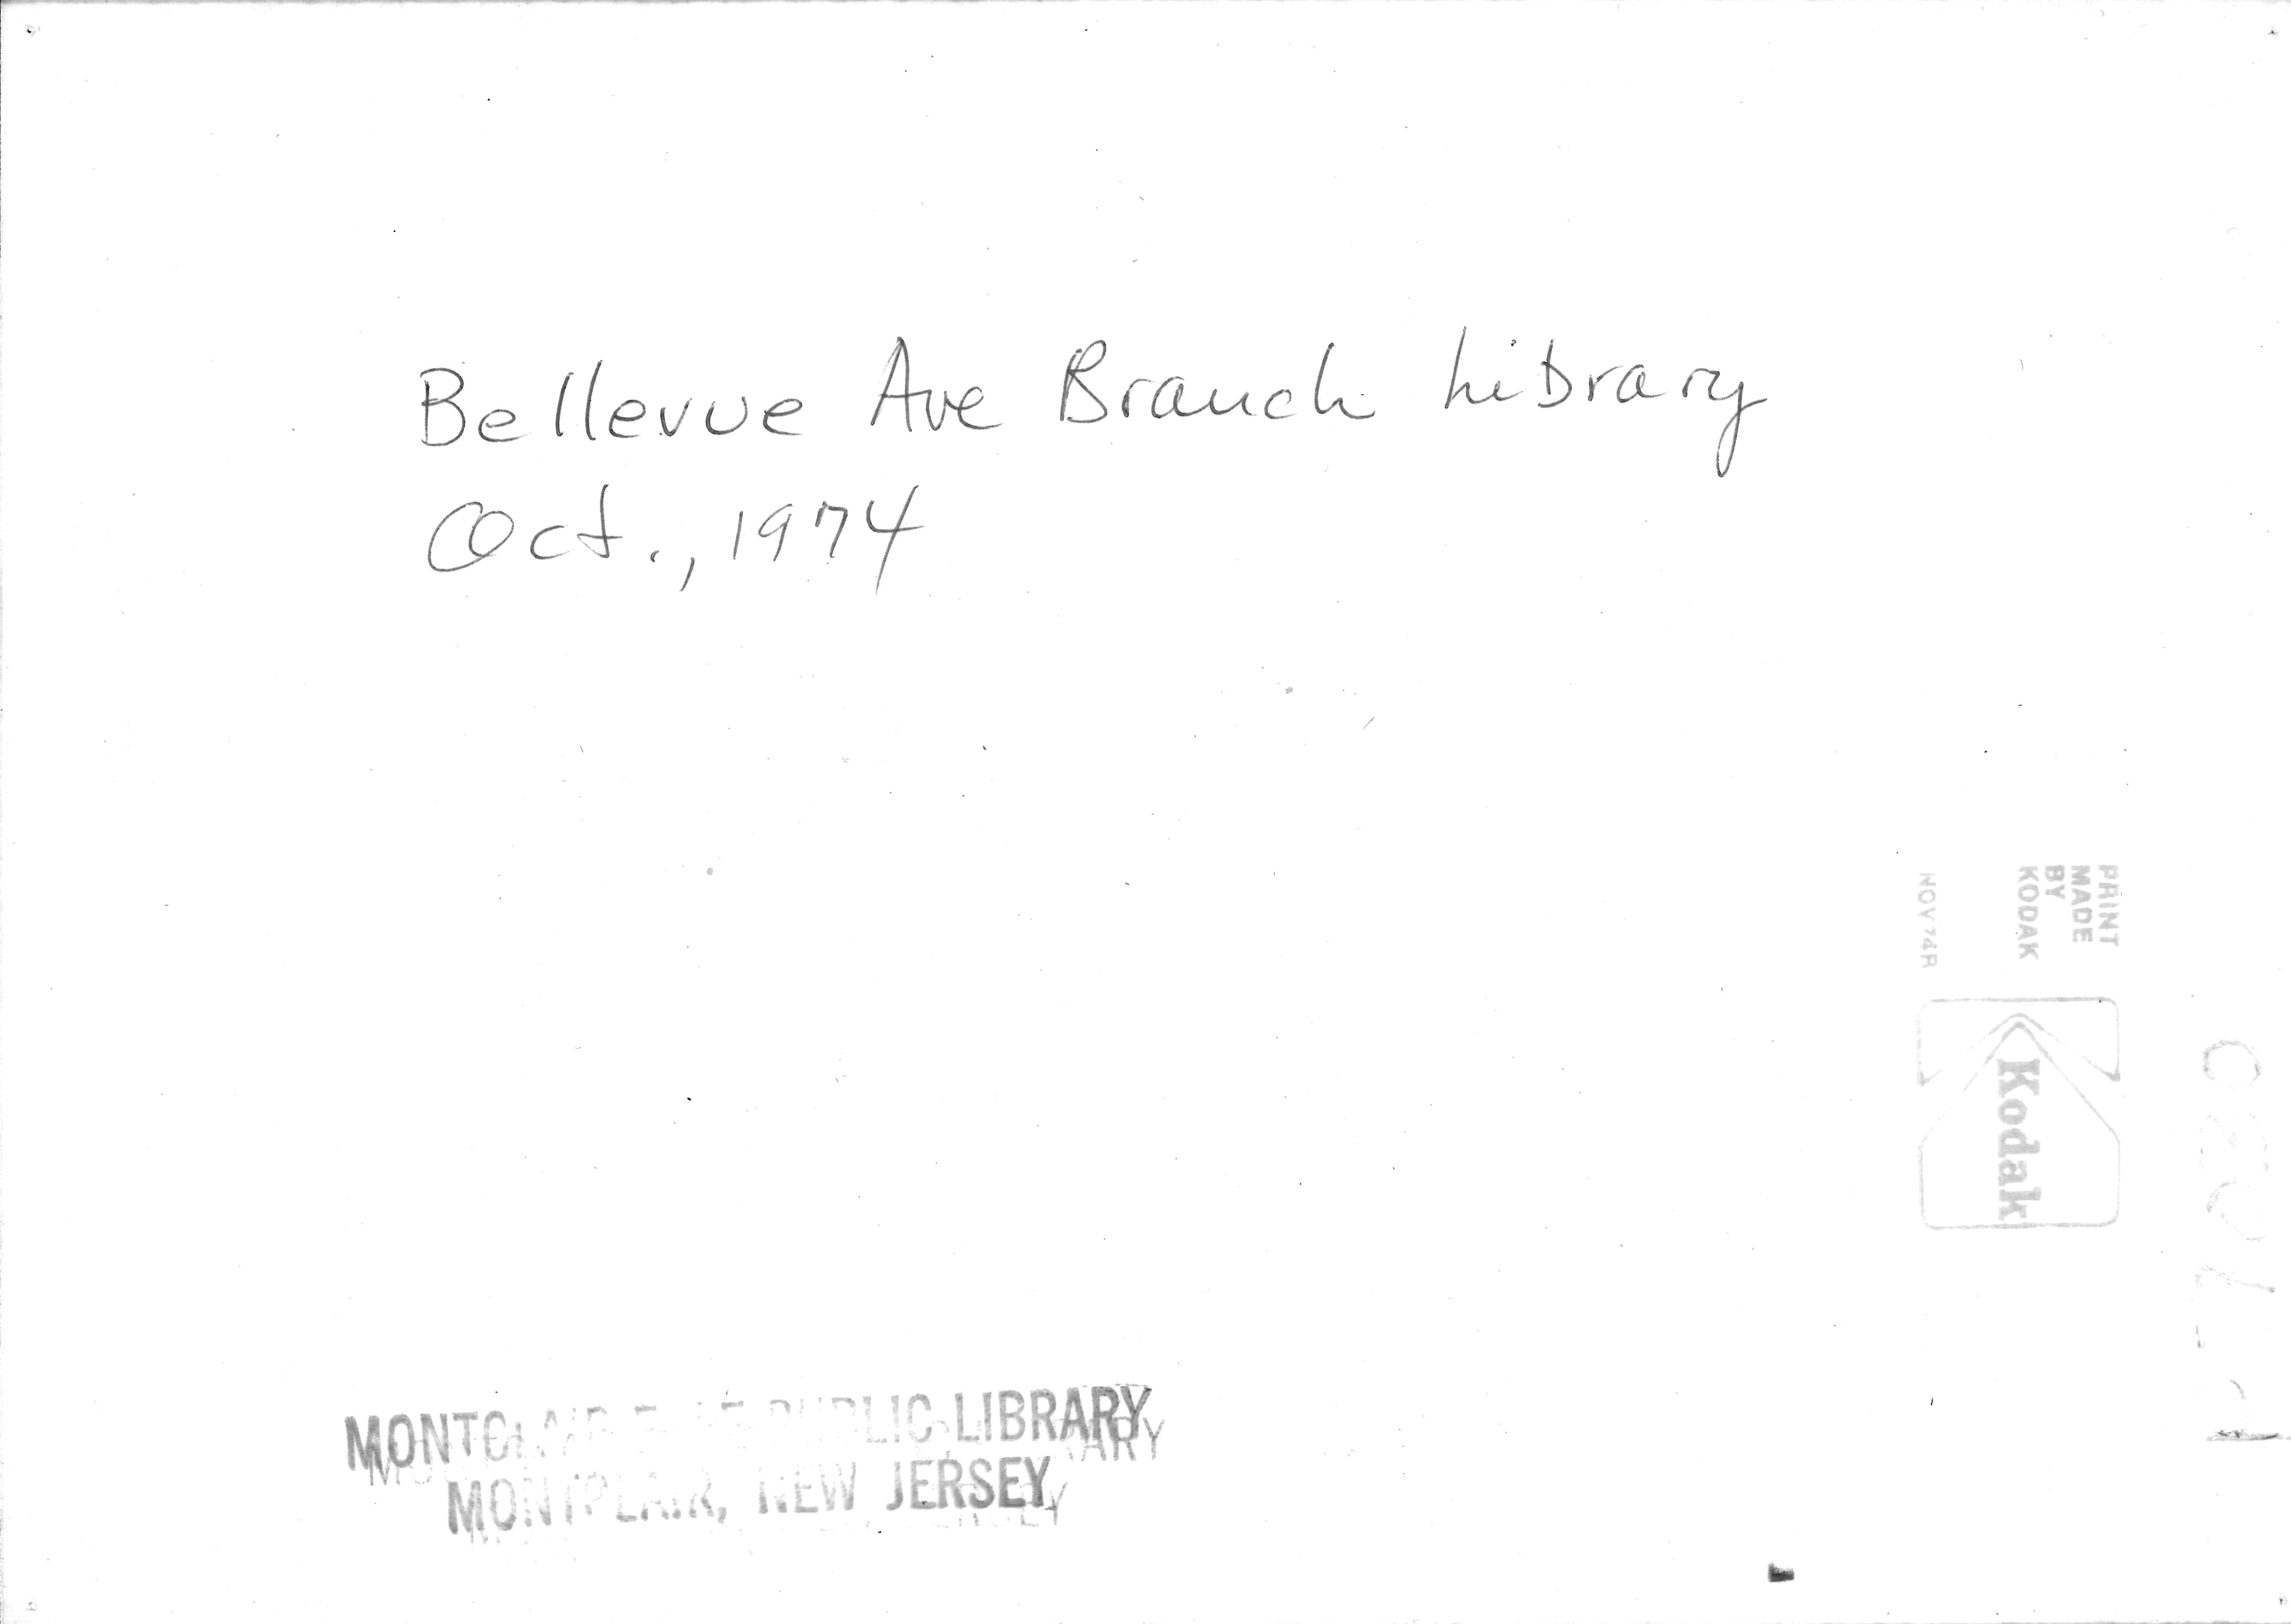 Bellevue Ave Branch Library
Oct., 1974
PRINT
MADE
BY
KODAK
NOV 74R
Kodak
PUBLIC LIBRARY
NEW JERSEY